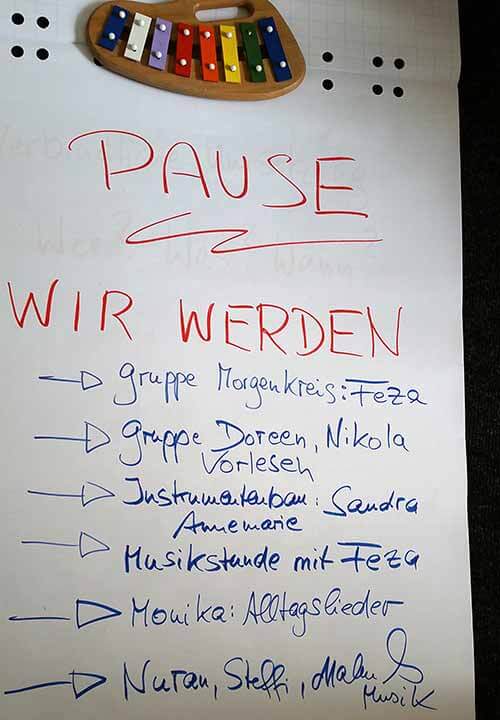 PAUSE
WIR WERDEN
Gruppe Morgenkreis: Feza
Gruppe Doreen, Nikola
Vorlesen
Instrumentenbau: Sandra
Annemarie
Musikstunde mit Feza
Monika: Alltagslieder
Nuran, Steffi,
Musik